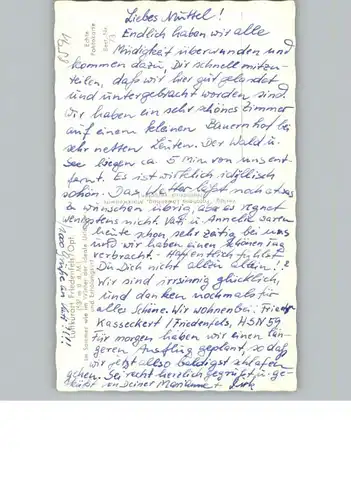 Liebes Muttel!
Endlich haben wir alle
Müdigkeit überwunden und
kommen dazu, Dir schnell mitzu-
teilen, daß wir hier gut gelandet
und untergebracht worden sind.
Wir haben ein sehr schönes Zimmer
auf einem kleinen Bauernhof bei
sehr netten Leuten. Der Wald u.
See liegen ca. 5 Min von uns ent-
fernt. Es ist wirklich idyllisch
schön. Das Wetter läßt noch etwas
zu wünschen übrig, aber es regnet
wenigstens nicht. Vati u. Annelie waren
heute schon sehr zeitig bei uns
und wir haben einen schönen Tag
verbracht. - Hoffentlich fühlst
Du Dich nicht allzu allein!?
Wir sind irrsinnig glücklich,
und danken nochmals für
alles Schöne. Wir wohnen bei: Friedr.
Kasseckert / Friedenfels, HSN 59
Für morgen haben wir einen län-
geren Ausflug geplant, so daß
wir jetzt allso baldigst schlafen
gehen. Sei recht herzlich gegrüßt u. ge-
küßt von Deiner Marianne +
1000 Grüße an Kati !!!
8591
Echte
Fotokarte
Luftkurort Friedenfels/Opf.